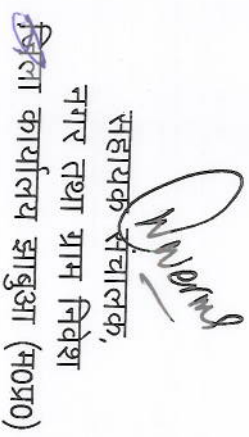 सहायक संचालक,
नगर तथा ग्राम निवेश
जिला कार्यालय झाबुआ (म0प्र0)